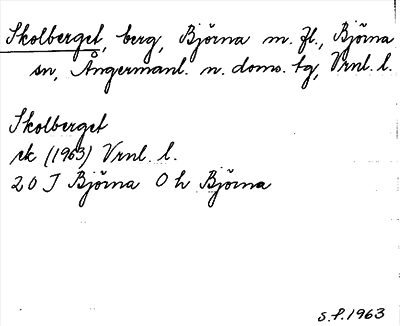 Skolberget, berg, Björna m. fl., Björna
sn, Ångermanl. n. doms. tg, Vrnl. l.
Skolberget
rk (1963) Vrnl. l.
20 J Björna 0 h Björna
S.P. 1963